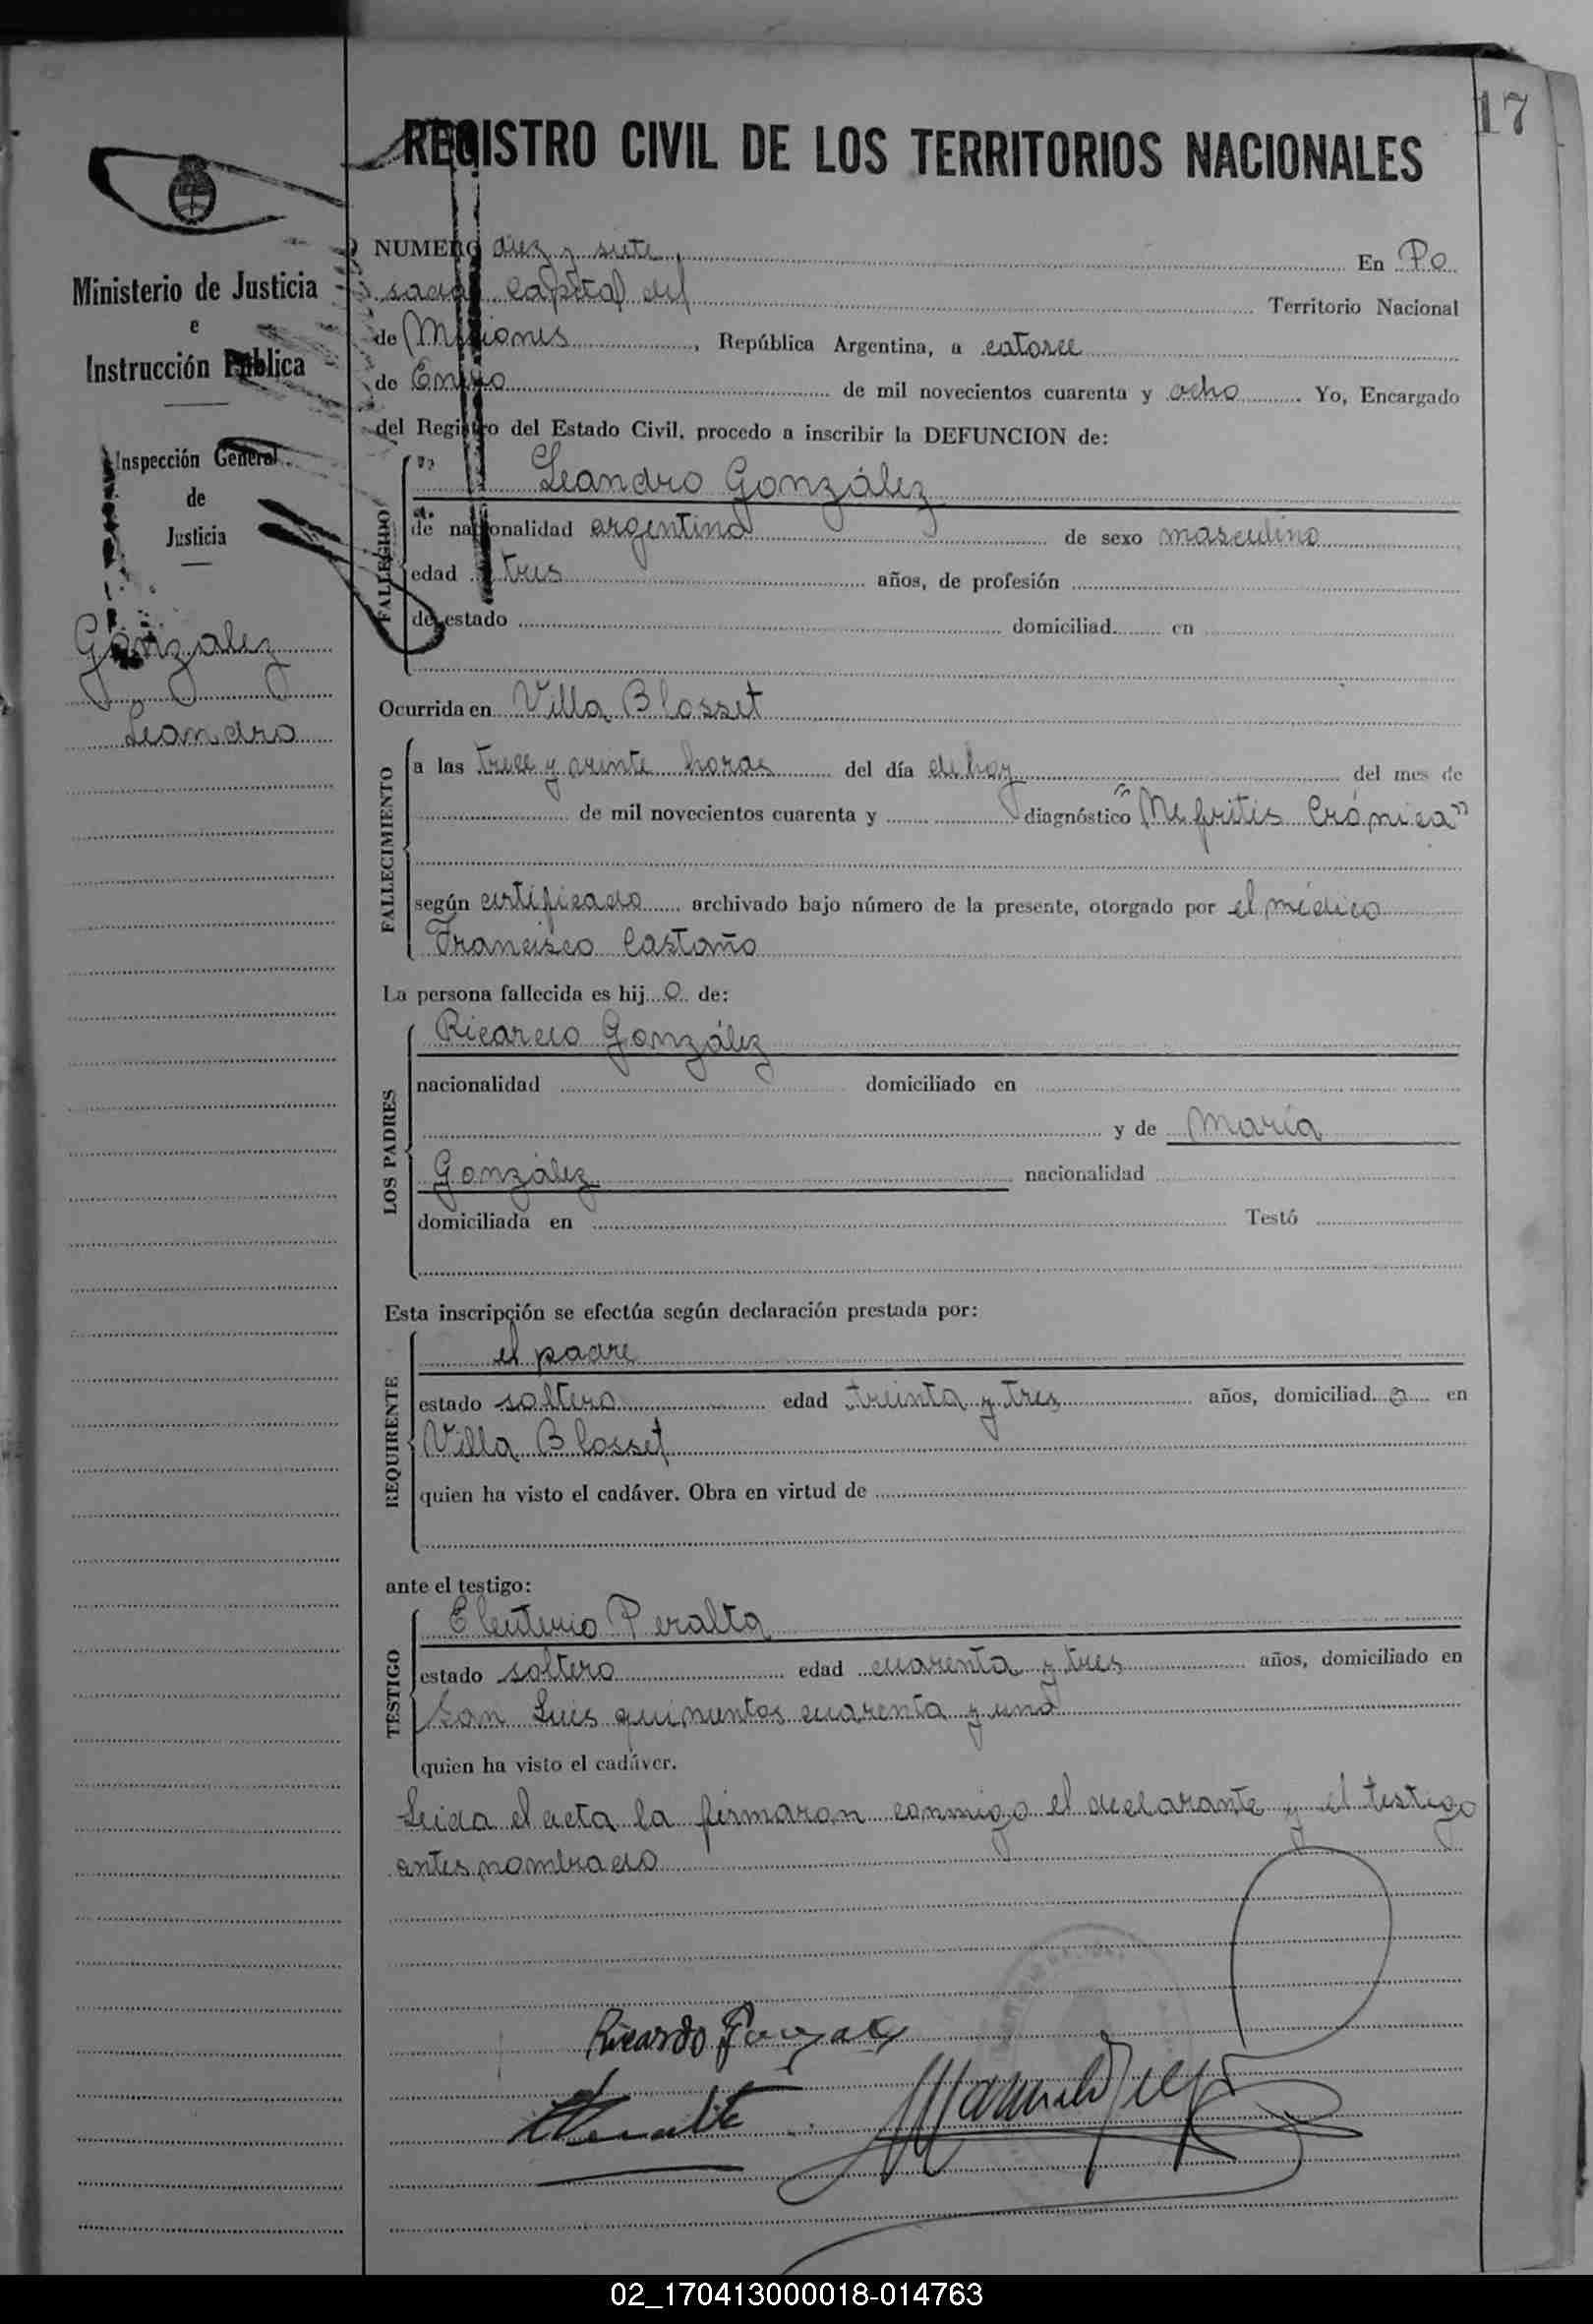 17
REGISTRO CIVIL DE LOS TERRITORIOS NACIONALES
Ministerio de Justicia
e
Instrucción Pública
Inspección General
de
Justicia
González
Leandro
NUMERO diez y siete En Po
sadas capital del Territorio Nacional
de Misiones, República Argentina, a catorce
de Enero de mil novecientos cuarenta y ocho. Yo, Encargado
del Registro del Estado Civil, procedo a inscribir la DEFUNCION de:
FALLECIDO
Leandro González
de nacionalidad argentino de sexo masculino
edad tres años, de profesión
de estado domiciliad en
Ocurrida en Villa Blosset
FALLECIMIENTO
a las trece y veinte horas del día de hoy del mes de
de mil novecientos cuarenta y diagnóstico "Nefritis Crónica"
según certificado archivado bajo número de la presente, otorgado por el médico
Francisco Castaño
La persona fallecida es hijo de:
LOS PADRES
Ricardo González
nacionalidad domiciliado en
y de María
González nacionalidad
domiciliada en Testó
Esta inscripción se efectúa según declaración prestada por:
REQUIRENTE
el padre
estado soltero edad treinta y tres años, domiciliado en
Villa Blosset
quien ha visto el cadáver. Obra en virtud de
ante el testigo:
TESTIGO
Eleuterio Peralta
estado soltero edad cuarenta y tres años, domiciliado en
San Luis quinientos cuarenta y uno
quien ha visto el cadáver.
Leida el acta la firmaron conmigo el declarante y el testigo
antes nombrado
Ricardo Gonzalez
02_170413000018-014763